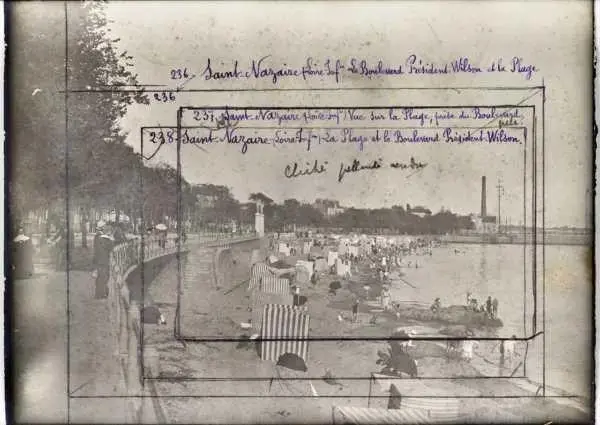 236- Saint-Nazaire (Loire-Infre) Le Boulevard Président-Wilson et la Plage
236
237- Saint-Nazaire (Loire-Infre) Vue sur la Plage, prise du Boulevard,
238-Saint-Nazaire (Loire-Infre) La Plage et le Boulevard Président-Wilson.
Cliché